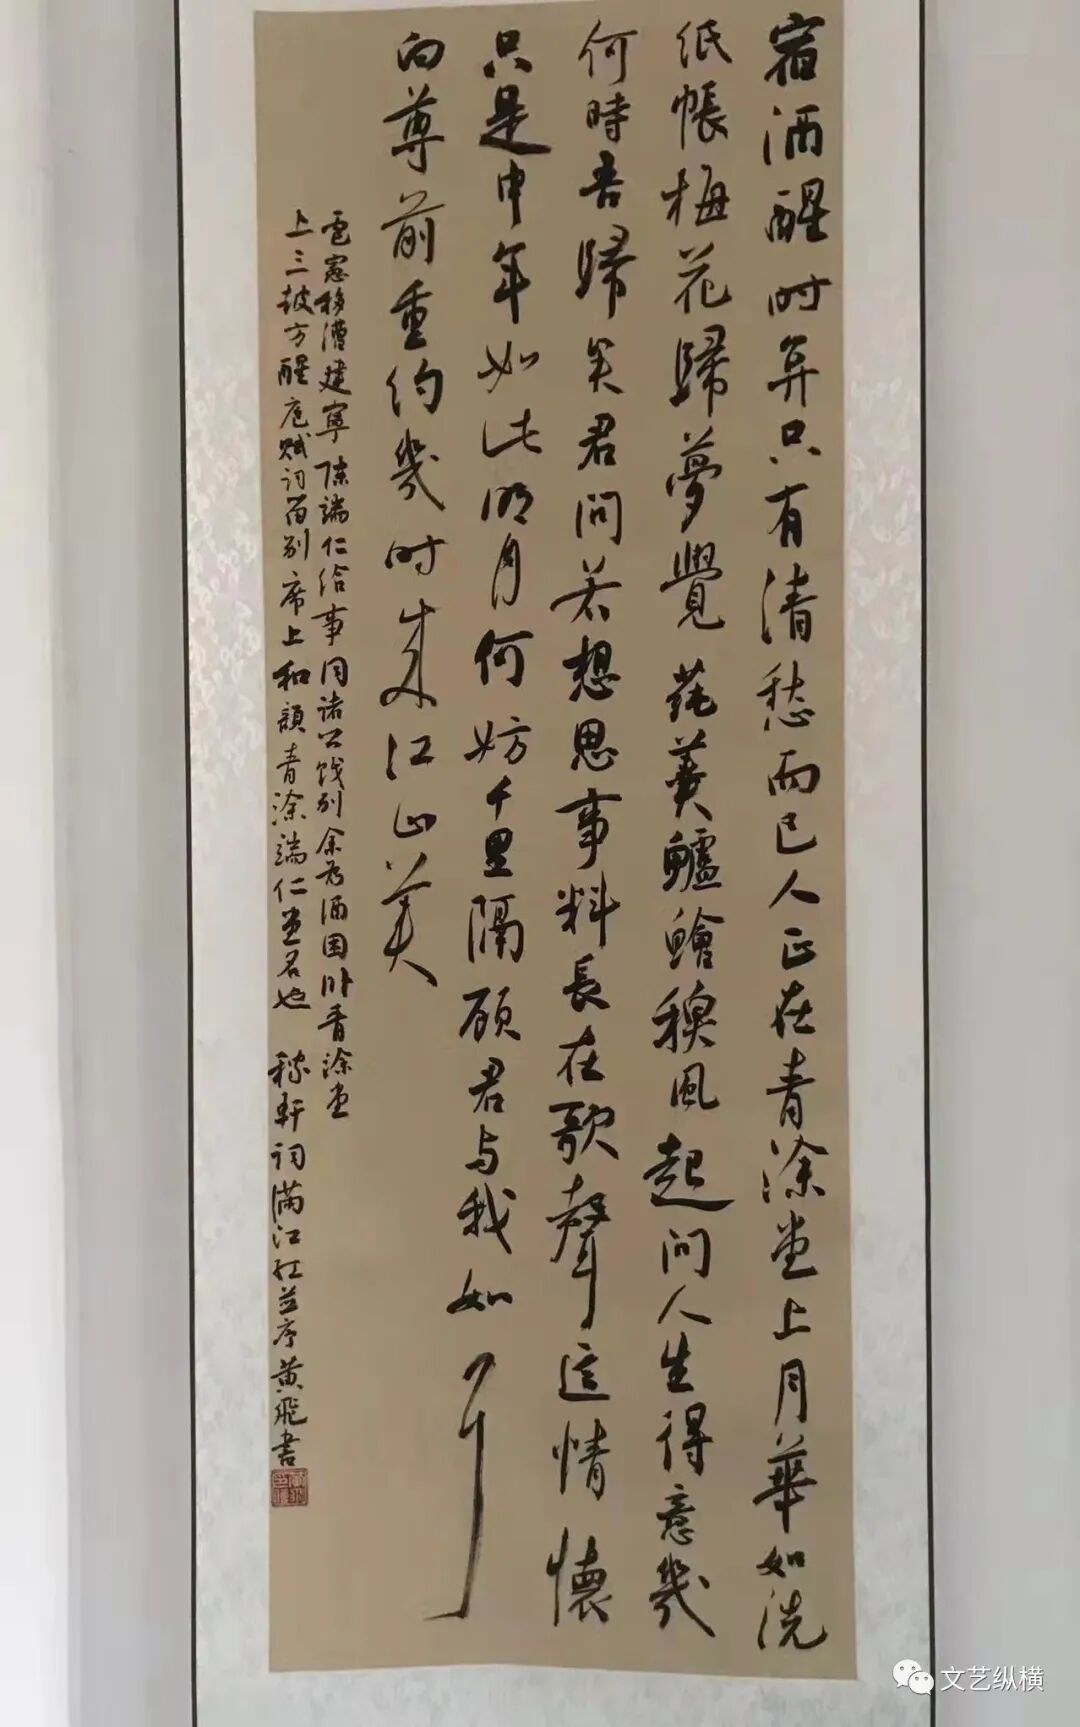 宿酒醒时算只有清愁而已人正在青涂堂上月華如洗
纸帳梅花歸夢覺蒓羹鱸鱠穐風起問人生得意幾
何時吾歸矣君問若想思事料長在歌聲這情懷
只是中年如此明月何妨千里隔顾君与我如何
向尊前重约幾时来江山美
盧憲移漕建寧陈端仁给事同诸公饯别余为酒困卧青涂堂
上三鼓方醒赋词留别席上和韻青涂端仁堂名也 稼轩词满江红並序黄飛書
文艺纵横